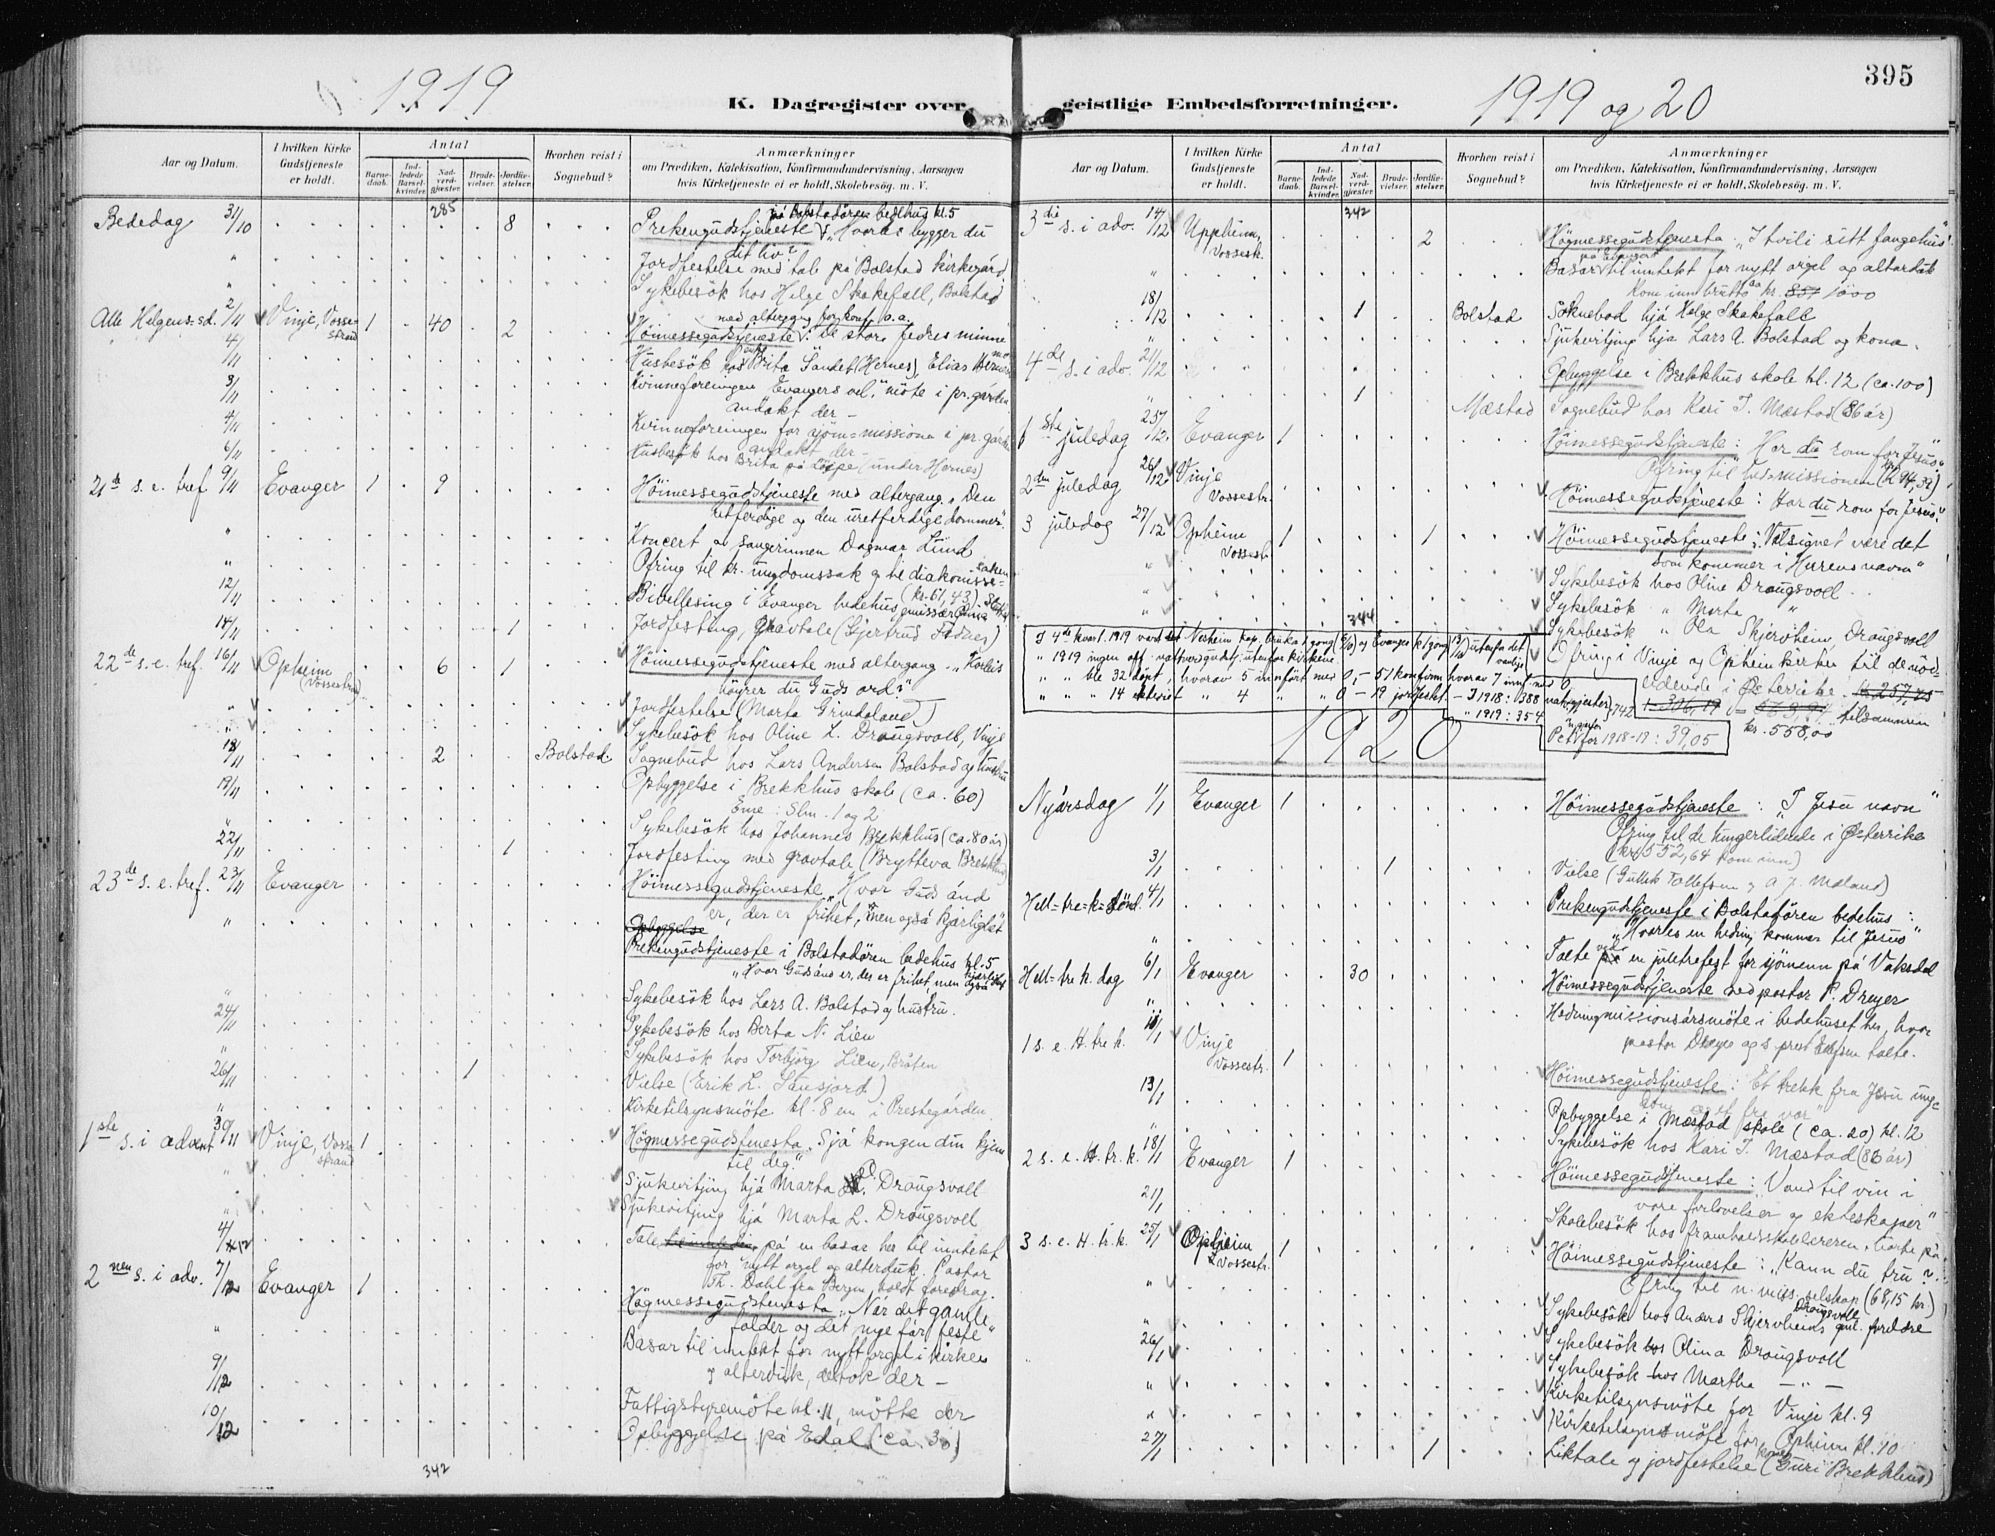 1919
K. Dagregister over
Aar og Datum.
I hvilken Kirke Gudstjeneste er holdt.
Antal
Barnedaab.
Indledede Barselkvinder.
Nadverdgjæster.
Brudevielser.
Jordfæstelser.
Hvorhen reist i Sognebud?
Anmærkninger
om Prædiken, Katekisation, Konfirmandundervisning, Aarsagen
hvis Kirketjeneste ei er holdt, Skolebesög. m. V.
285
på Bolstadören bedehus kl. 5
Bededag 31/10 8 Prekengudstjeneste: "Hvorpå bygger du
dit liv?"
" Jordfestelse med tale på Bolstad kirkegård
" Sykebesök hos Helge Skakefall, Bolstad
med altergang for konf. o.a.
Alle Helgens-sd. 2/11 Vinje, Vossestrand 1 40 2 Höimessegudstjeneste: De store fedres minne
4/11 Husbesök hos Brita Sandet (Hernes), Elias Hernes
3/11 Kvinneforeningen Evangers vel, möte i pr.gården
andakt der -
4/11 Kvinneforeningen for sjöm=missionen i pr.gården
andakt der -
6/11 Husbesök hos Brita på Löppe (under Hernes)
21de s. e. tref 9/11 Evanger 1 9 Höimessegudstjeneste med altergang. "Den
retferdige og den uretferdige dommer".
" Koncert av sangerinnen Dagmar Lund
" Ofring til kr. ungdomssak og til diakonisse-saken
(kr. 61,43)
12/11 Bibellesing i Evanger bedehus
14/11 1 Jordfesting, gravtale (Gjertrud Fadnes)
22de s. e. tref. 16/11 Opheim (Vossestrand) 6 1 Höimessegudstjeneste med altergang. "Korleis
höyrer du Guds ord?"
" Jordfestelse (Marta Grindalane)
" Sykebesök hos Oline L. Draugsvoll, Vinje
18/11 2 Bolstad Sognebud hos Lars Andersen Bolstad og hustru
19/11 Opbyggelse i Brekkhus skole (ca. 60)
Emne: Slm. 1 og 2
" Sykebesök hos Johannes Brekkhus (ca. 80 år)
22/11 1 Jordfesting med gravtale (Brytteva Brekkhus)
23de s. e. tref. 23/11 Evanger Höimessegudstjeneste "Hvor Guds ånd
er, der er frihet, men også kjærlighet"
" Opbyggelse
Prekengudstjeneste i Bolstadören bedehus kl. 5
"Hvor Guds ånd er, der er frihet men også kjærlighet
" Sykebesök hos Lars A. Bolstad og hustru.
24/11 Sykebesök hos Berta N. Lien
" Sykebesök hos Torbjörg Lien, Bråten
26/11 1 Vielse (Erik L. Sansjord)
" Kirketilsynsmöte kl. 8 em i Prestegården
1ste s. i advent 30/11 Vinje, Vossestrand 1 Högmessegudstenesta "Sjå kongen din kjem
til deg."
" Sjukevitjing hjå Marta O. Draugsvoll
" Sjukevitjing hjå Marta L. Draugsvoll
4/12 Tale på en basar her til inntekt
for nytt orgel og alterduk. Pastor
Th. Dahl fra Bergen holdt foredrag.
2nen s. i adv. 7/12 Evanger 1 Högmessegudstenesta "Når det gamle
folder og det nye får feste"
" Basar til inntekt for nytt orgel i kirken
og alterduk, deltok der -
9/12 Fattigstyremöte kl. 11, mötte der
10/12 Opbyggelse på Edal (ca. 30)
342
395
1919 og 20
geistlige Embedsforretninger.
Aar og Datum.
I hvilken Kirke Gudstjeneste er holdt.
Antal
Barnedaab.
Indledede Barselkvinder.
Nadverdgjæster.
Brudevielser.
Jordfæstelser.
Hvorhen reist i Sognebud?
Anmærkninger
om Prædiken, Katekisation, Konfirmandundervisning, Aarsagen
hvis Kirketjeneste ei er holdt, Skolebesög. m. V.
342
3die s. i adv. 14/12 Uppheim, Vossestr. 2 Högmessegudstenesta. "I tvili sitt fangehus"
" Basar på Evanger til inntekt for nytt orgel og alterduk
Kom inn brutto kr. 851 1000
18/12 1 Bolstad Soknebod hjå Helge Skakefall
" Sjukvitjing hja Lars A. Bolstad og kona.
4de s. i adv. 21/12 Opbyggelse i Brekkhus skole kl. 12 (ca. 100)
" 1 Mæstad Sognebud hos Kari I. Mæstad (86 år)
1ste juledag 25/12 Evanger 1 Höimessegudstjeneste: "Her da rom for Jesus"
Ofring til hedmissionen (kr. 94,32)
2den juledag 26/12 Vinje Vossestr. Höimessegudstjeneste: Har du rom for Jesus?
3 juledag 27/12 Opheim Vossestr. 1 1 Höimessegudstjeneste: "Velsignet være det
som kommer i Herrens navn"
" Sykebesök hos Oline Draugsvoll
" Sykebesök " Marta "
344
Sykebesök " Ola Skjervheim, Draugsvoll
Ofring i Vinje og Opheim kirker til de nöd-
lidende i Østerrike kr 257,45
306,19 563,91 tilsammen
kr. 558,00
" 1919 ingen off. nattverdgudstj. utenfor kirkene
" " ble 32 döpt, hvorav 5 innfört med 0, - 51 konfirm. hvorav 7 innf. med 0
" " " 14 " 4 " 0 - 19 jordfestet. - I 1918: 388 nattv.gjester } 742
" 1919: 354
for 1918-19: 39,05
1920
Nyårsdag 1/1 Evanger 1 Höimessegudstjeneste: "I Jesu navn"
Ofring til de hungerlidende i Østerrike
(kr. 552,64 kom inn)
3/1 1 Vielse (Gullik Tollefsen og A. J. Mæland)
Hell=tre=k=sönd. 4/1 Prekengudstjeneste i Bolstadören bedehus:
"Hvorles en hedning kommer til Jesus"
" Talte ved en juletrefest for sjömenn på Vaksdal
Hell. tre k. dag 6/1 Evanger 30 Höimessegudstjeneste ved pastor P. Dreyer
" Hedningmissionsårsmöte i bedehuset her, hvor
pastor Dreyer og s. prest talte.
1 s. e. H. tre k. 11/1 Vinje Vossestr. 1 Höimessegudstjeneste: Et trekk fra Jesu ung-
dom og et fra vor"
13/1 Opbyggelse i Mæstad skole (ca. 20) kl. 12
" Sykebesök hos Kari I. Mæstad (86 år)
2 s. e. H. tr. k. 18/1 Evanger 1 Höimessegudstjeneste: "Vand til vin i
vore forlovelser og ekteskaper"
21/1 Skolebesök hos framhaldsskolelæreren, horte på
3 s. e. H. tr. k. 25/1 Opheim Vossestr. 1 Höimessegudstjeneste: "Kann du tru?"
Ofring til n. miss. selskap (68,15 kr.)
" Sykebesök hos Anders Skjervheims Draugsvoll gml. foreldre
" Sykebesök hos Olina Draugsvoll
26/1 Sykebesök hos Martha - " -
" Kirketilsynsmöte for Vinje kl. 9
" Kirketilsynsmöte for Opheim kl. 10
27/1 1 Liktale og jordfestelse (kone Guri Brekkhus)